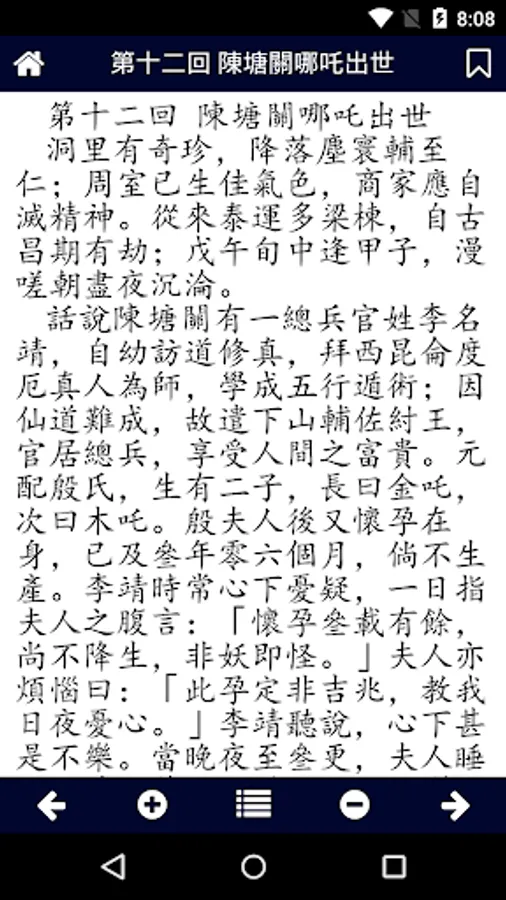 8:08
第十二回 陳塘關哪吒出世
第十二回 陳塘關哪吒出世
洞里有奇珍，降落塵寰輔至
仁；周室已生佳氣色，商家應自
滅精神。從來泰運多梁棟，自古
昌期有劫；戊午旬中逢甲子，漫
嗟朝盡夜沉淪。
話說陳塘關有一總兵官姓李名
靖，自幼訪道修真，拜西昆侖度
厄真人為師，學成五行遁術；因
仙道難成，故遣下山輔佐紂王，
官居總兵，享受人間之富貴。元
配殷氏，生有二子，長曰金吒，
次曰木吒。殷夫人後又懷孕在
身，已及叄年零六個月，倘不生
產。李靖時常心下憂疑，一日指
夫人之腹言：「懷孕叄載有餘，
尚不降生，非妖即怪。」夫人亦
煩惱曰：「此孕定非吉兆，教我
日夜憂心。」李靖聽說，心下甚
是不樂。當晚夜至叄更，夫人睡